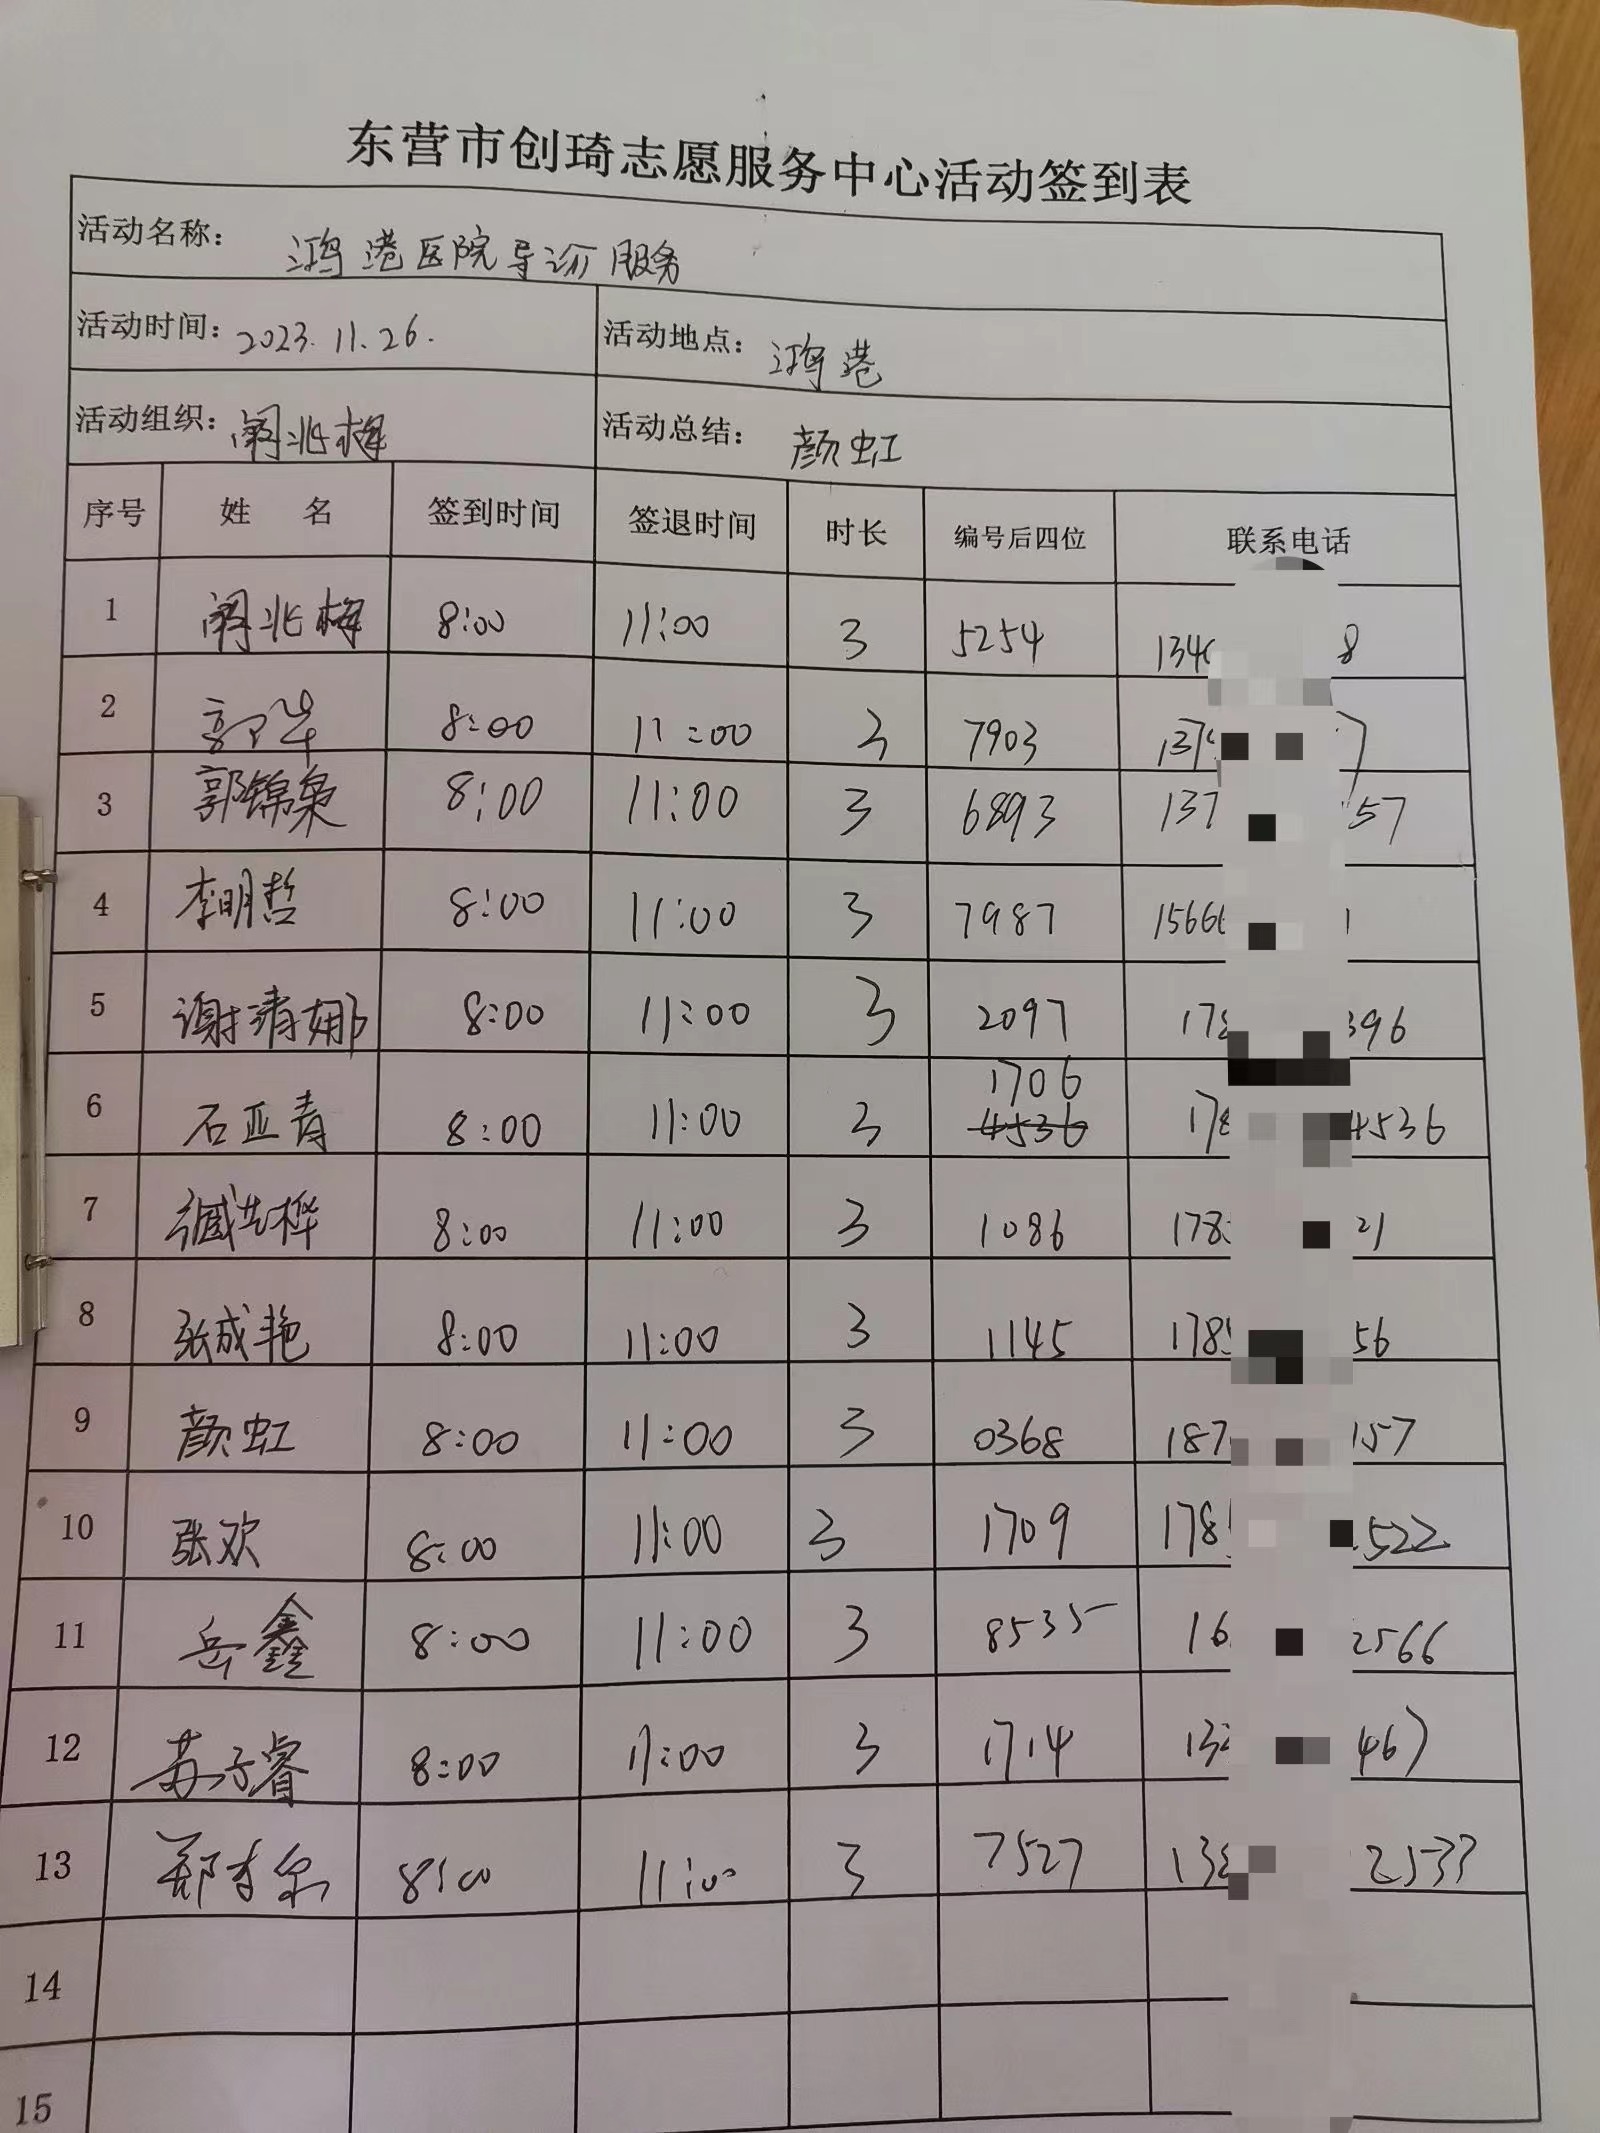 东营市创琦志愿服务中心活动签到表
活动名称: 鸿港医院导诊服务
活动时间: 2023.11.26. 活动地点: 鸿港
活动组织: 阚兆梅 活动总结: 颜虹
序号 姓 名 签到时间 签退时间 时长 编号后四位 联系电话
1 阚兆梅 8:00 11:00 3 5254 134 8
2 郭华 8:00 11:00 3 7903 137 7
3 郭锦枭 8:00 11:00 3 6893 137 57
4 李明哲 8:00 11:00 3 7987 1566 1
5 谢清娜 8:00 11:00 3 2097 178 396
6 石亚青 8:00 11:00 3 1706 4536 178 4536
7 8:00 11:00 3 1086 178 21
8 张成艳 8:00 11:00 3 1145 178 56
9 颜虹 8:00 11:00 3 0368 187 157
10 张欢 8:00 11:00 3 1709 178 522
11 岳鑫 8:00 11:00 3 8535 16 2566
12 苏子睿 8:00 11:00 3 1714 13 467
13 郑 8:00 11:00 3 7527 13 2533
14
15